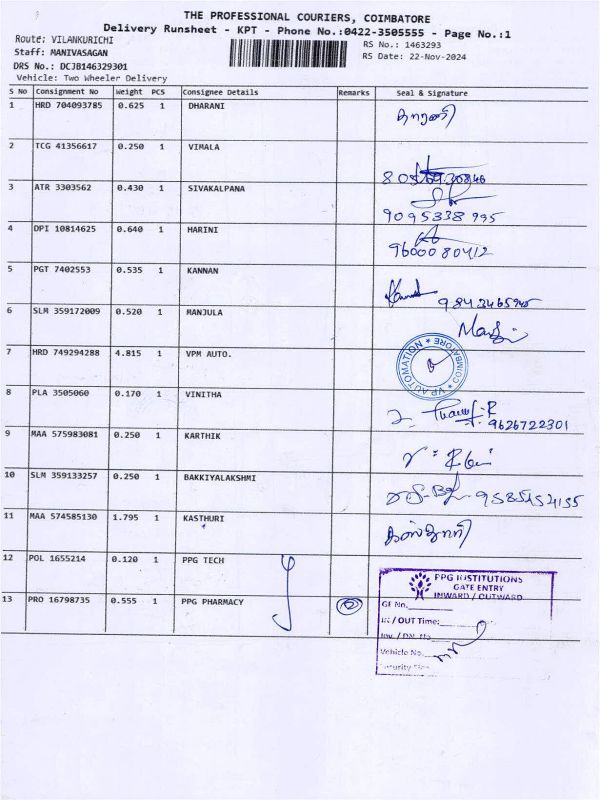 THE PROFESSIONAL COURIERS, COIMBATORE
Delivery Runsheet - KPT - Phone No.:0422-3505555 - Page No.:1
Route: VILANKURICHI
RS No.: 1463293
Staff: MANIVASAGAN
RS Date: 22-Nov-2024
DRS No.: DCJB146329301
Vehicle: Two Wheeler Delivery
S No Consignment No Weight PCS Consignee Details Remarks Seal & Signature
1 HRD 704093785 0.625 1 DHARANI தாரணி
2 TCG 41356617 0.250 1 VIMALA
3 ATR 3303562 0.430 1 SIVAKALPANA 9095338995
4 DPI 10814625 0.640 1 HARINI 9600080412
5 PGT 7402553 0.535 1 KANNAN 9843465945
6 SLM 359172009 0.520 1 MANJULA
7 HRD 749294288 4.815 1 VPM AUTO. VP AUTOMATION * COIMBATORE *
8 PLA 3505060 0.170 1 VINITHA 9626722301
9 MAA 575983081 0.250 1 KARTHIK
10 SLM 359133257 0.250 1 BAKKIYALAKSHMI
11 MAA 574585130 1.795 1 KASTHURI கஸ்தூரி
12 POL 1655214 0.120 1 PPG TECH
13 PRO 16798735 0.555 1 PPG PHARMACY 2
PPG INSTITUTIONS
GATE ENTRY
INWARD / OUTWARD
GE No.
IN / OUT Time:
Inv. / DN. No.
Vehicle No.
Security